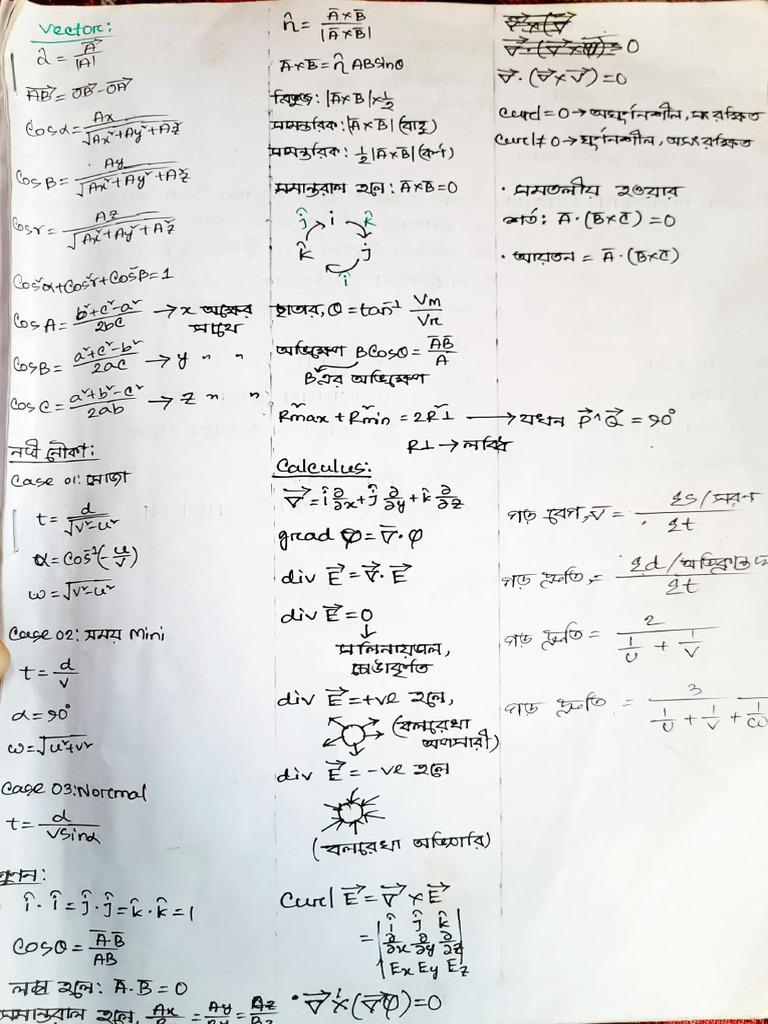 Vector:
â = A⃗/|A|
AB⃗ = OB⃗ - OA⃗
Cosα = Ax/√(Ax²+Ay²+Az²)
CosB = Ay/√(Ax²+Ay²+Az²)
Cosr = Az/√(Ax²+Ay²+Az²)
Cos²α+Cos²r+Cos²β=1
CosA = (b²+c²-a²)/2bc → x অক্ষের সাথে
CosB = (a²+c²-b²)/2ac → y " "
CosC = (a²+b²-c²)/2ab → z " "
নদী নৌকা:
Case 01: সোজা
t = d/√(v²-u²)
α = Cos⁻¹(-u/v)
w = √(v²-u²)
Case 02: সময় Mini
t = d/v
α = 90°
w = √(u²+v²)
Case 03: Normal
t = d/vsinα
গুণন:
î·î = ĵ·ĵ = k̂·k̂ = 1
Cosθ = A̅·B̅/AB
লম্ব হলে: A̅·B̅ = 0
সমান্তরাল হলে, Ax/Bx = Ay/By = Az/Bz
n̂ = A̅×B̅/|A̅×B̅|
A̅×B̅ = n̂ ABsinθ
ত্রিভুজ: |A̅×B̅|×½
সামান্তরিক: |A̅×B̅| (বাহু)
সামান্তরিক: ½|A̅×B̅| (কর্ণ)
সমান্তরাল হলে: A̅×B̅ = 0
ĵ i k̂
k̂ j
î
ছাতার, θ = tan⁻¹ Vm/Vr
অভিক্ষেপ BCosθ = A̅B̅/A
B এর অভিক্ষেপ
R²max + R²min = 2R²⊥ → যখন P⃗^Q⃗ = 90°
R⊥ → লব্ধি
Calculus:
∇⃗ = î ∂/∂x + ĵ ∂/∂y + k̂ ∂/∂z
grad φ = ∇̅·φ
div E⃗ = ∇⃗·E⃗
div E⃗ = 0
↓
সলিনয়ডাল,
div E⃗ = +ve হলে,
(বলরেখা অপসারী)
div E⃗ = -ve হলে
(বলরেখা অভিসারি)
Curl E⃗ = ∇⃗ × E⃗
= |î ĵ k̂
∂/∂x ∂/∂y ∂/∂z
Ex Ey Ez|
· ∇⃗×(∇⃗φ) = 0
∇⃗·(∇⃗×V⃗) = 0
Curl = 0 → অঘূর্ণনশীল, সংরক্ষিত
Curl ≠ 0 → ঘূর্ণনশীল, অসংরক্ষিত
· সমতলীয় হওয়ার
শর্ত: A̅·(B̅×C̅) = 0
· আয়তন = A̅·(B̅×C̅)
গড় বেগ, v̅ = Σs/সরণ / Σt
গড় দ্রুতি, = Σd/অতিক্রান্ত / Σt
গড় দ্রুতি = 2/(1/u + 1/v)
গড় দ্রুতি = 3/(1/u + 1/v + 1/w)